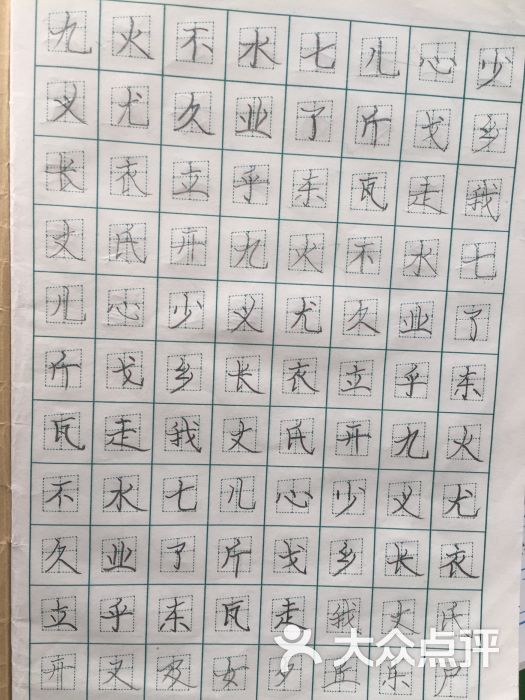 九火不水七儿心少
义尤久业了斤戈乡
长衣立乎东瓦走我
丈氏开九火不水七
儿心少义尤久业了
斤戈乡长衣立乎东
瓦走我丈氏开九火
不水七儿心少义尤
久业了斤戈乡长衣
立乎东瓦走我丈氏
开叉及女夕丘乐尸
大众点评